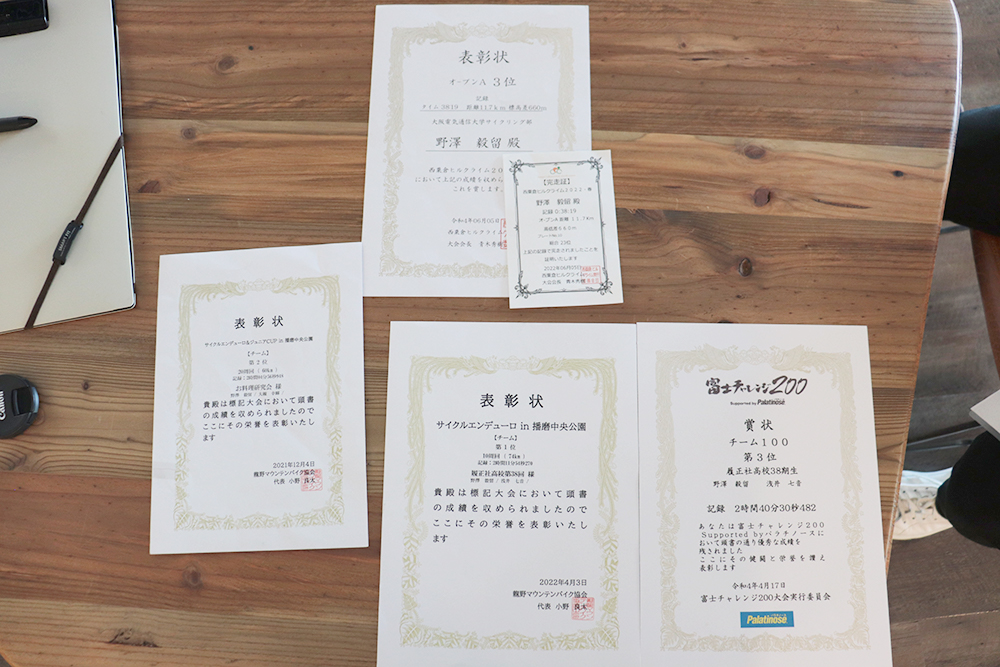 表彰状
オープンA 3位
記録
タイム 3819 距離11.7km 標高差660m
大阪電気通信大学サイクリング部
野澤 毅留 殿
西粟倉ヒルクライム20
において上記の成績を収めら
これを賞します。
令和4年06月05日
西粟倉ヒルクライム
大会会長 青木秀樹
【完走証】
西粟倉ヒルクライム2022
野澤 毅留 殿
記録 0:38:19
オープンA 距離 11.7Km
総合 23位
上記の記録で完走されましたことを
証明いたします
2022年06月05日
西粟倉ヒルクライム
大会会長 青木秀樹
表彰状
サイクルエンデューロ&ジュニアCUP in 播磨中央公園
【チーム】
第2位
20周回 ( 80km )
お料理研究会 様
貴殿は標記大会において頭書
の成績を収められましたので
ここにその栄誉を表彰いたし
ます
2021年12月4日
龍野マウンテンバイク協会
代表 小野 良太
表彰状
サイクルエンデューロ in 播磨中央公園
【チーム】
第1位
10周回 ( 74km )
記録:2時間11分54秒270
履正社高校第38回 様
野澤 毅留 / 浅井 七音
貴殿は標記大会において頭書
の成績を収められましたので
ここにその栄誉を表彰いたし
ます
2022年4月3日
龍野マウンテンバイク協会
代表 小野 良太
富士チャレンジ200
Supported by Palatinose
賞状
チーム100
第3位
履正社高校38期生
野澤 毅留 浅井 七音
記録 2時間40分30秒482
あなたは富士チャレンジ200
Supported byパラチノースに
おいて頭書の通り優秀な成績を
残されました
ここにその健闘と栄誉を讃え
表彰します
令和4年4月17日
富士チャレンジ200大会実行委員会
Palatinose
Canon